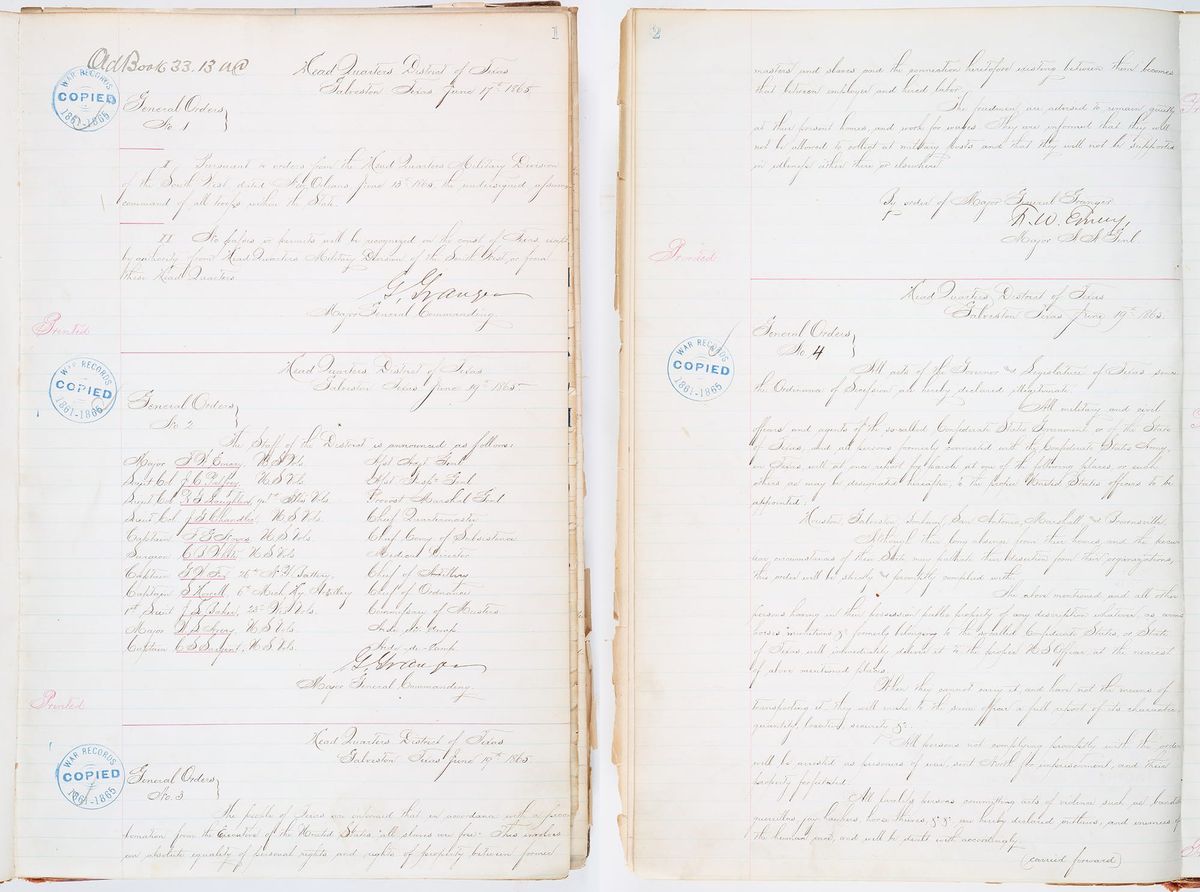 1
Old Book 33. 13 AC
WAR RECORDS
COPIED
1861-1865
Head Quarters District of Texas
Galveston Texas June 17th 1865
General Orders
No. 1
I Pursuant to orders from the Head Quarters Military Division
of the South West, dated New Orleans, June 13th 1865, the undersigned assumes
command of all troops within the State.
II No passes or permits will be recognized on the coast of Texas, except
by authority from Head Quarters Military Division of the South West, or from
these Head Quarters
G. Granger
Major General Commanding.
Printed
WAR RECORDS
COPIED
1861-1865
Head Quarters District of Texas
Galveston Texas June 19th 1865
General Orders
No. 2
The Staff of the District is announced as follows:
Major F W Emery, U S Vols. Asst Adjt Genl
Lieut Col Asst Insp. Genl
Lieut Col R G Laughlin, 94th Ills Vols Provost Marshal Genl
Lieut Col J G Chandler, U S Vols. Chief Quartermaster
Captain U S Vols. Chief Comy of Subsistence
Surgeon U S Vols Medical Director
Captain G W Fox 26th N Y Battery, Chief of Artillery
Captain S Howell 6th Mich Hy Artillery Chief of Ordnance
1st Lieut J L Baker, 23d Vols. Commissary of Musters
Major U S Vols. Aide de Camp
Captain C S Sargent, U S Vols. Aide de Camp
G. Granger
Major General Commanding.
Printed
WAR RECORDS
COPIED
1861-1865
Head Quarters District of Texas
Galveston Texas June 19th 1865.
General Orders
No. 3
The people of Texas are informed that in accordance with a procla-
mation from the Executive of the United States, "all slaves are free." This involves
an absolute equality of personal rights and rights of property between former
2
masters and slaves and the connection heretofore existing between them becomes
that between employer and hired labor.
The freedmen are advised to remain quietly
at their present homes, and work for wages. They are informed that they will
not be allowed to collect at military posts and that they will not be supported
in idleness either there or elsewhere
By order of Major General Granger
F. W. Emery,
Major A A Genl.
Printed
Head Quarters District of Texas
Galveston Texas June 19th 1865.
WAR RECORDS
COPIED
1861-1865
General Orders
No. 4
All acts of the Governor and Legislature of Texas since
the Ordinance of Secession are hereby declared illegitimate.
All military and civil
officers and agents of the so-called Confederate States Government or of the State
of Texas, and all persons formerly connected with the Confederate States Army,
in Texas will at once report for parole at one of the following places, or such
others as may be designated hereafter, to the proper United States officers to be
appointed:
Houston, Galveston, Bonham, San Antonio, Marshall and Brownsville.
Although their long absence from their homes, and the peculiar
circumstances of their State may palliate their desertion from their organizations,
this order will be strictly and promptly complied with.
The above mentioned and all other
persons having in their possession public property of any description whatever, as arms
horses munitions &c formerly belonging to the so called Confederate States, or State
of Texas will immediately deliver it to the proper U S Officer at the nearest
of above mentioned places.
When they cannot carry it, and have not the means of
transporting it they will make to the same officer a full report of its character,
quantity, location, security &c.
All persons not complying promptly with this order
will be arrested as prisoners of war, sent North for imprisonment, and their
property forfeited.
All lawless persons committing acts of violence such as banditti
guerillas, jay hawkers, horse thieves, &c &c are hereby declared outlaws, and enemies of
the human race, and will be dealt with accordingly.
(carried forward)